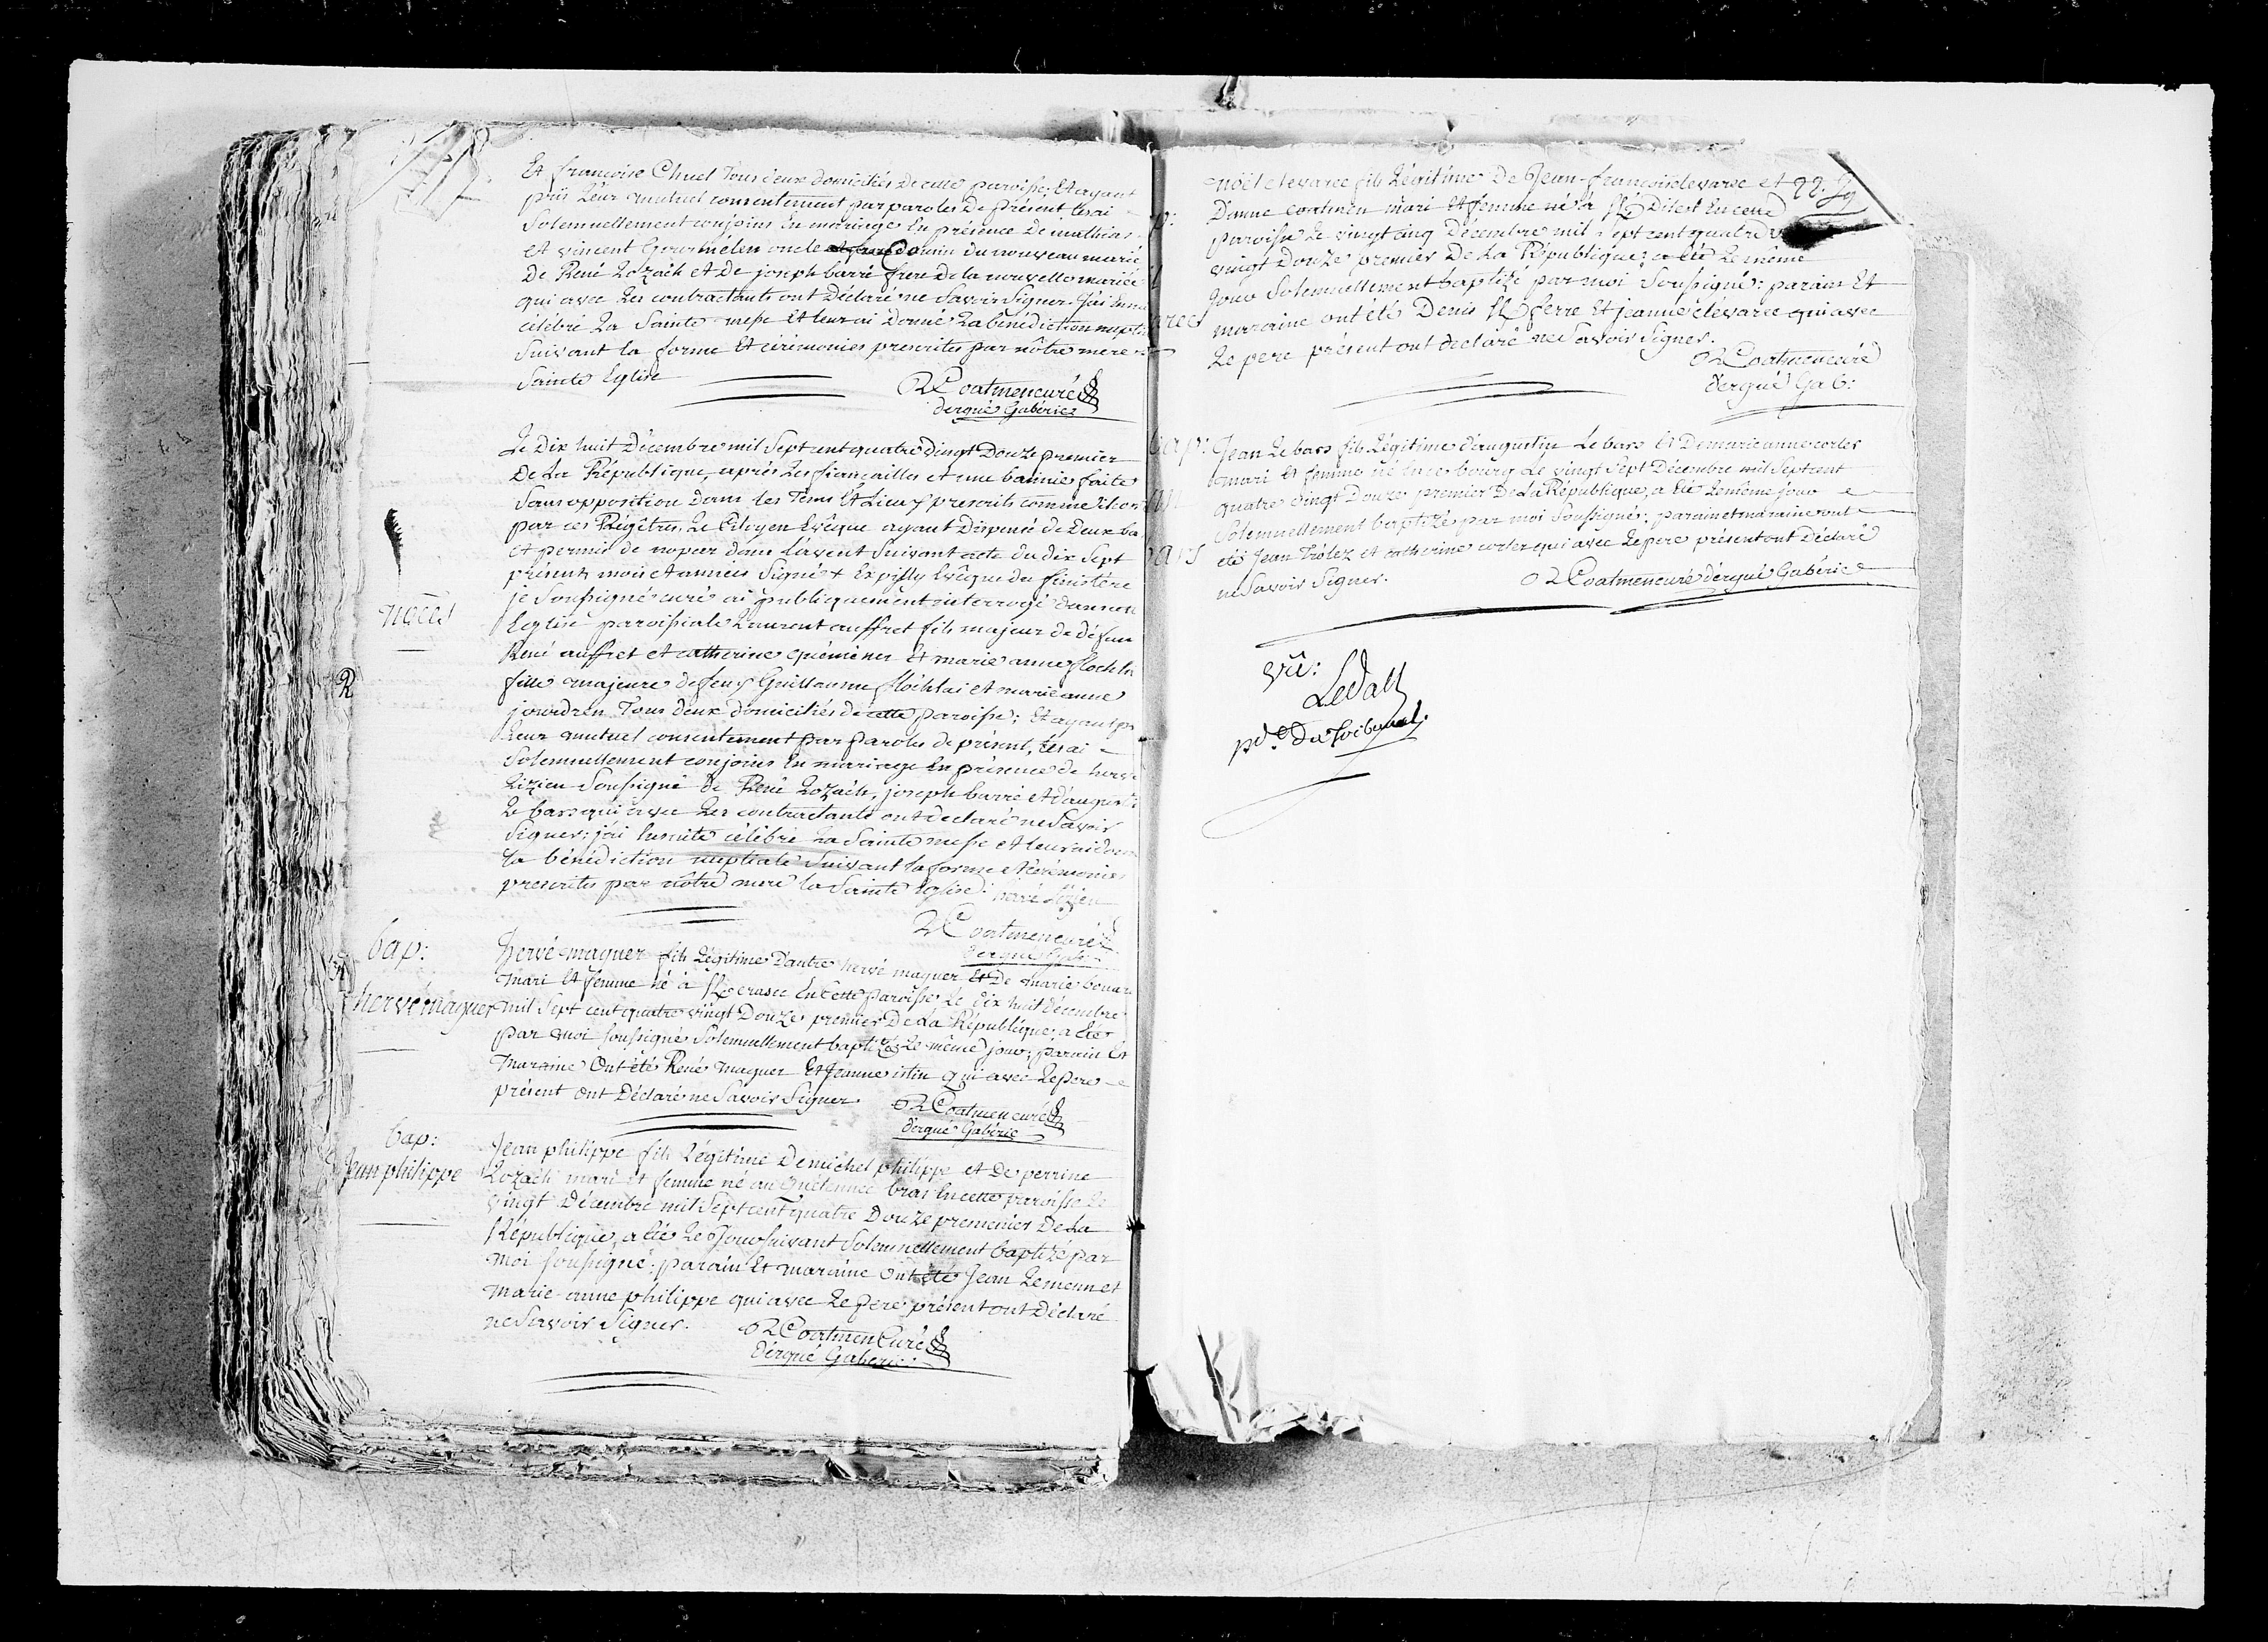 Et francoise Chuel Tous deux domiciliés de cette paroisse; Et ayant
pris Leur mutuel consentement par paroles De présent Les ai
Solemnellement conjoins En mariage En présence De mathias
et vincent Gourmélen oncle et cousin du nouveau marié
De René Lozach et De joseph barré frere de la nouvelle mariée
qui avec Les contractants ont Déclaré ne Savoir Signer. J'ai
célébré La Sainte messe Et leur ai Donné La bénédiction
Suivant la forme Et cérémonies prescrites par nôtre mere
Sainte Eglise
R Coatmen curé
d'ergué Gabéric
nôces
Le Dix huit Décembre mil Sept cent quatre vingt Douze premier
De La République, après Les fiancailles et une bannie faite
Sans opposition dans les Tems Et Lieux prescrits comme il
par ces Régîtres, Le Citoyen Evêque ayant Dispensé de Deux
et permis de noper dans l'avent Suivant acte du dix Sept
présents mois et année Signé + Expilly Evêque du finistère
je Soussigné curé ai publiquement interrogé dans
Eglise paroissiale Laurent auffret fils majeur de
René auffret et catherine quéméner Et marie anne
fille majeure de feux Guillaume flochlai et marie anne
jouidren Tous deux domiciliés de cette paroisse; Et ayant
Leur mutuel consentement par paroles de présent, Les ai
Solemnellement conjoins En mariage En présence de
Lizien Soussigné de René Lozach, joseph barré Et
Le bars qui avec Les contractants ont declaré ne Savoir
Signer; j'ai Ensuite célébré La Sainte messe et leur ai
La bénédiction nuptiale Suivant la forme et cérémonies
prescrites par nôtre mere la Sainte Eglise: hervé Lizien
R Coatmen curé
d'ergué Gab
bap:
hervé maguer
hervé maguer fils Légitime D'autre hervé maguer Et De marie
mari Et femme né à En cette paroisse Le dix huit décembre
mil Sept cent quatre vingt Douze premier De La République; a Eté
par moi soussigné Solemnellement baptizé Le même jour; parain Et
maraine Ont été René maguer Et Jeanne istin qui avec Le pere
présent ont Déclaré ne Savoir Signer
R Coatmen curé
d'ergué Gabéric
bap:
Jean philippe
Jean philippe fils Légitime De michel philippe et De perrine
Lozach mari et femme né au Quélennec bras En cette paroisse Le
vingt Décembre mil Sept cent quatre Douze premenier De La
République, a été Le Jour suivant Solemnellement baptizé par
moi soussigné: parain Et maraine ont été Jean Lemenn et
marie-anne philippe qui avec Le pere présent ont Déclaré
ne Savoir Signer.
R Coatmen Curé
d'ergué Gabéric
noël clevarec fils Légitime De Jean-francois clevarec et
D'anne coatmen mari Et femme né à En cette
paroisse Le vingt cinq Décembre mil Sept cent quatre
vingt Douze premier De La République; a été Le même
jour Solemnellement baptizé par moi Soussigné: parain Et
maraine ont été Denis Et jeanne clévarec qui avec
Le pere présent ont declaré ne Savoir Signer.
R Coatmen curé
d'ergué Gab:
bap:
Jean Le bars fils Légitime d'augustin Le bars Et De marie anne corler
mari Et femme né En ce bourg Le vingt Sept Décembre mil Sept cent
quatre vingt Douze premier De La République, a Eté Le même jour
Solemnellement baptizé par moi Soussigné: parain et maraine ont
eté Jean Trôlez et catherine corler qui avec Le pere présent ont Déclaré
ne Savoir Signer.
R Coatmen curé d'ergué Gabéric
vû:
Ledall
pdt Du Tribunal.